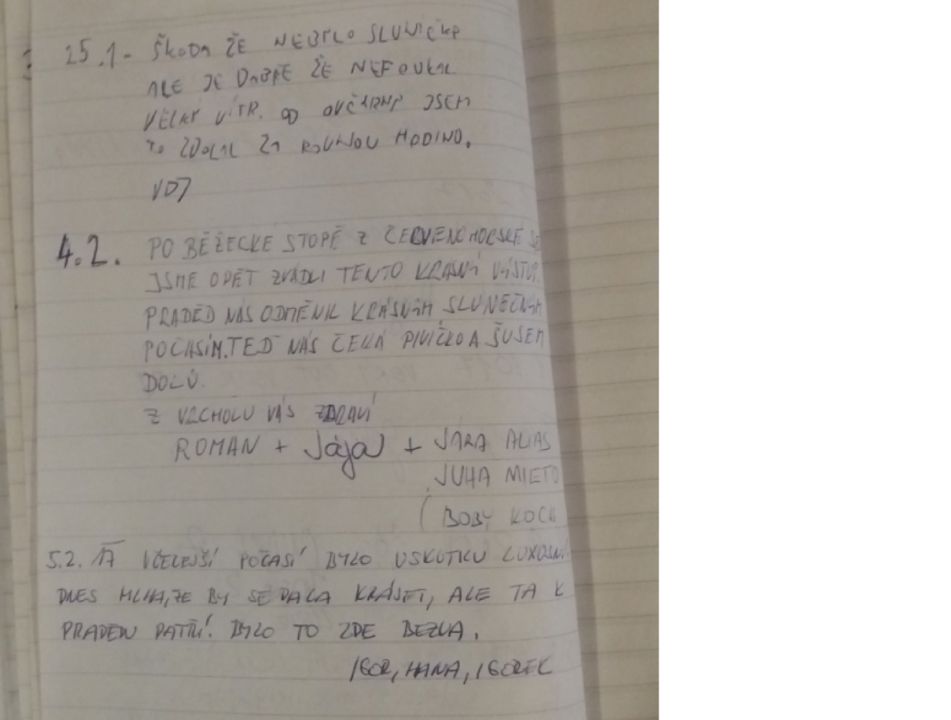 25.1- ŠKODA ŽE NEBYLO SLUNÍČKO
ALE JE DOBŘE ŽE NEFOUKAL
VELKÝ VÍTR. OD OVČÁRNY JSEM
TO ZDOLAL ZA ROVNOU HODINU.
4.2. PO BĚŽECKÉ STOPĚ Z ČERVENOHORSKÉ SE
JSME OPĚT ZVÁDLI TENTO KRÁSNÝ VÝSTUP.
PRADĚD NÁS ODMĚNIL KRÁSNÝM SLUNEČNÝM
POČASÍM. TEĎ NÁS ČEKÁ PIVÍČKO A ŠUSEM
DOLŮ.
Z VRCHOLU VÁS ZDRAVÍ
ROMAN + Jája + JARA ALIAS
JUHA MIETO
( BOBY KOCH
5.2. 17 VČEREJŠÍ POČASÍ BYLO VSKUTKU LUXUSNÍ.
DNES MLHA, ŽE BY SE DALA KRÁJET, ALE TA K
PRADĚDU PATŘÍ. BYLO TO ZDE BEZVA.
IGOR, HANA, IGOREK